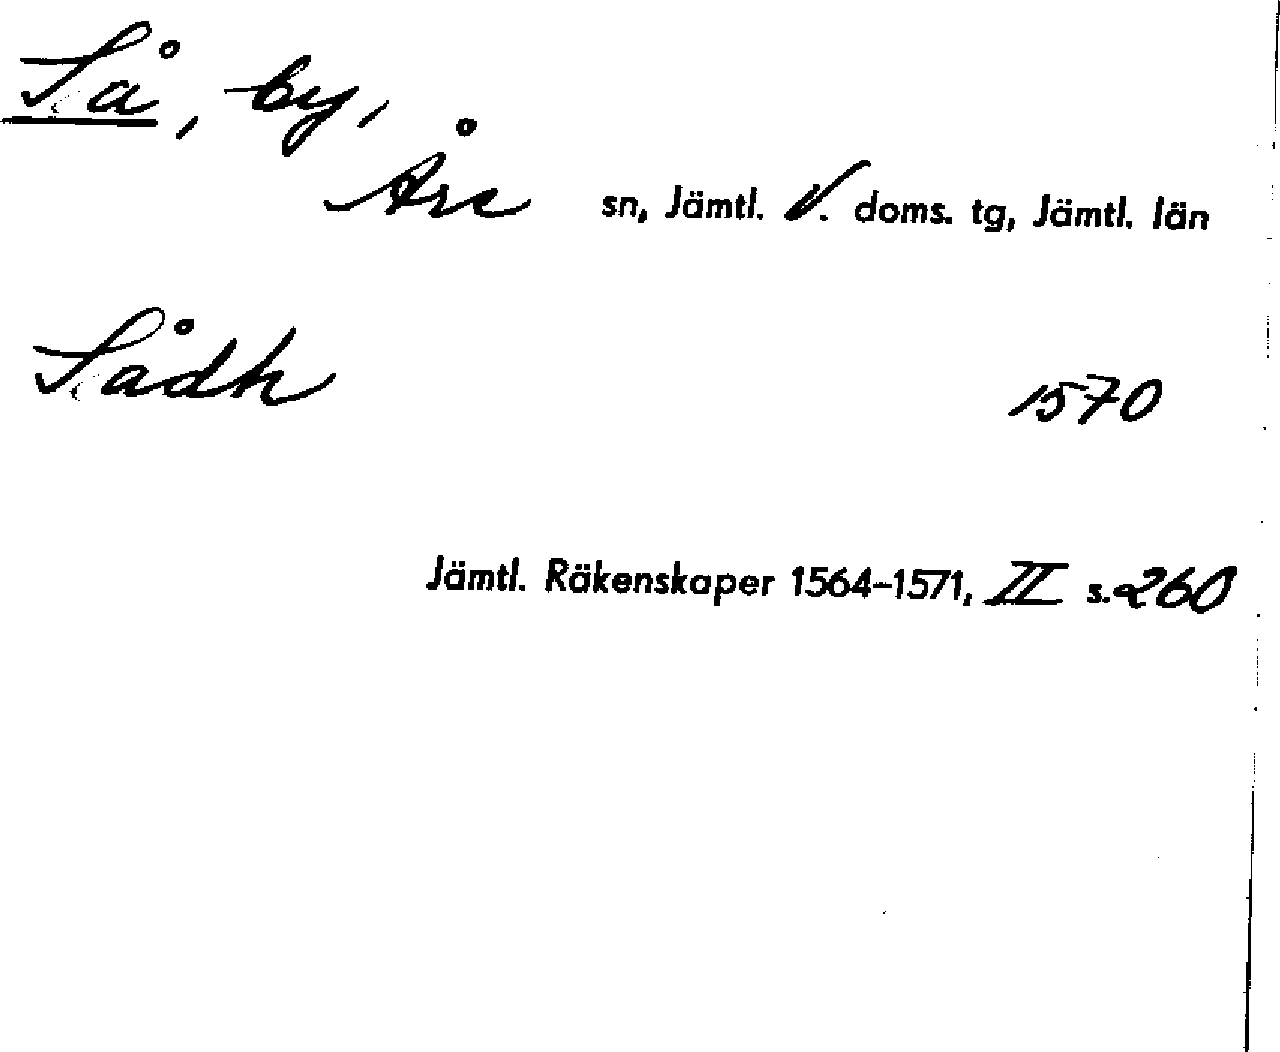 Så, by,
Åre sn, Jämtl. V. doms. tg, Jämtl. län
Sådh 1570
Jämtl. Räkenskaper 1564-1571, II s. 260